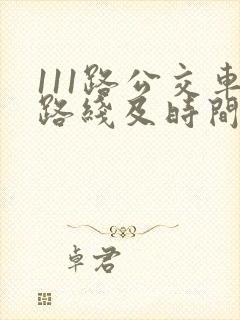 111路公交車
路綫及時間
卓君